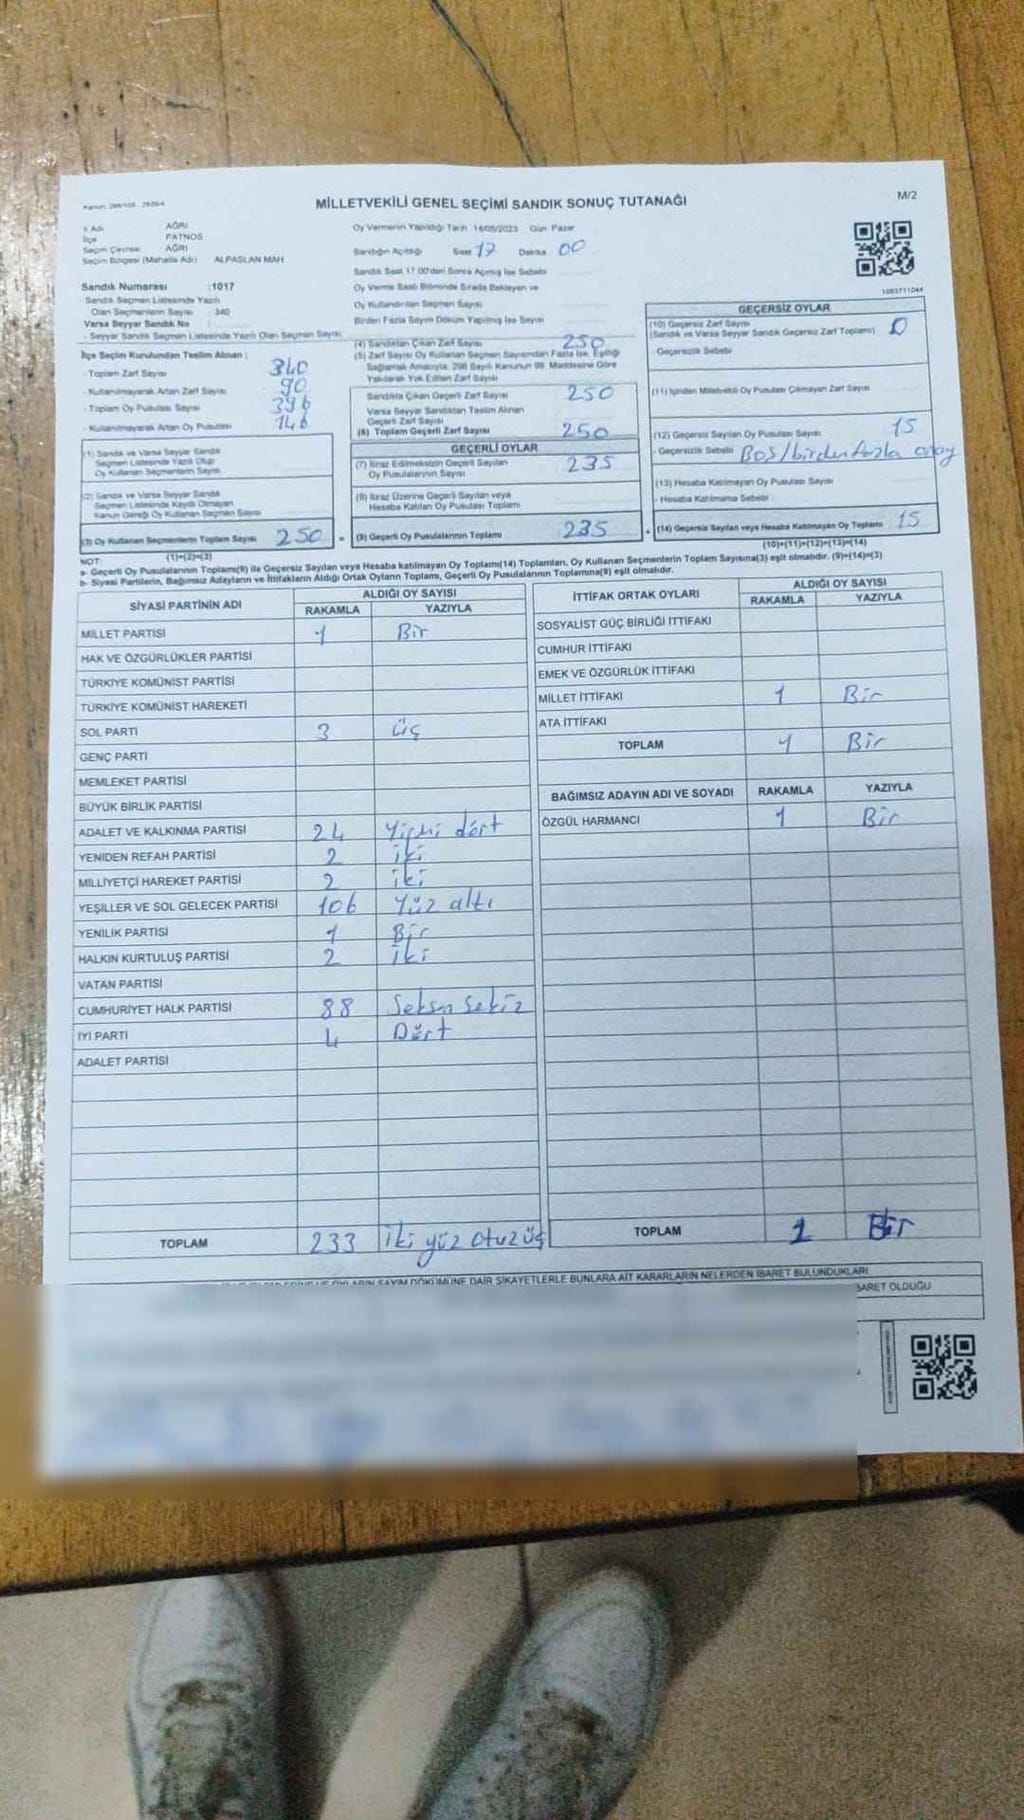 MİLLETVEKİLİ GENEL SEÇİMİ SANDIK SONUÇ TUTANAĞI
M/2
İl Adı AĞRI
İlçe PATNOS
Seçim Çevresi AĞRI
Seçim Bölgesi (Mahalle Adı) ALPASLAN MAH
Sandık Numarası :1017
Sandık Seçmen Listesinde Yazılı
Olan Seçmenlerin Sayısı 340
Varsa Seyyar Sandık No
- Seyyar Sandık Seçmen Listesinde Yazılı Olan Seçmen Sayısı
Oy Vermenin Yapıldığı Tarih 14/05/2023 Gün Pazar
Sandığın Açıldığı Saat 17 Dakika 00
Sandık Saat 17.00'den Sonra Açılmış İse Sebebi
Oy Verme Saati Bitiminde Sırada Bekleyen ve
Oy Kullandırılan Seçmen Sayısı
Birden Fazla Sayım Döküm Yapılmış İse Sayısı
1083711044
İlçe Seçim Kurulundan Teslim Alınan :
- Toplam Zarf Sayısı 340
- Kullanılmayarak Artan Zarf Sayısı 90
- Toplam Oy Pusulası Sayısı 396
- Kullanılmayarak Artan Oy Pusulası 146
(1) Sandık ve Varsa Seyyar Sandık
Seçmen Listesinde Yazılı Olup
Oy Kullanan Seçmenlerin Sayısı
(2) Sandık ve Varsa Seyyar Sandık
Seçmen Listesinde Kayıtlı Olmayan
Kanun Gereği Oy Kullanan Seçmen Sayısı
(3) Oy Kullanan Seçmenlerin Toplam Sayısı 250
(1)+(2)=(3)
(4) Sandıktan Çıkan Zarf Sayısı 250
(5) Zarf Sayısı Oy Kullanan Seçmen Sayısından Fazla İse, Eşitliği
Sağlamak Amacıyla, 298 Sayılı Kanunun 98. Maddesine Göre
Yakılarak Yok Edilen Zarf Sayısı
Sandıkta Çıkan Geçerli Zarf Sayısı 250
Varsa Seyyar Sandıktan Teslim Alınan
Geçerli Zarf Sayısı
(6) Toplam Geçerli Zarf Sayısı 250
GEÇERLİ OYLAR
(7) İtiraz Edilmeksizin Geçerli Sayılan
Oy Pusulalarının Sayısı 235
(8) İtiraz Üzerine Geçerli Sayılan veya
Hesaba Katılan Oy Pusulası Toplamı
= (9) Geçerli Oy Pusulalarının Toplamı 235
GEÇERSİZ OYLAR
(10) Geçersiz Zarf Sayısı
(Sandık ve Varsa Seyyar Sandık Geçersiz Zarf Toplamı) 0
- Geçersizlik Sebebi
(11) İçinden Milletvekili Oy Pusulası Çıkmayan Zarf Sayısı
(12) Geçersiz Sayılan Oy Pusulası Sayısı 15
- Geçersizlik Sebebi Boş/birden fazla onay
(13) Hesaba Katılmayan Oy Pusulası Sayısı
- Hesaba Katılmama Sebebi
+ (14) Geçersiz Sayılan veya Hesaba Katılmayan Oy Toplamı 15
(10)+(11)+(12)+(13)=(14)
NOT:
a- Geçerli Oy Pusulalarının Toplamı(9) ile Geçersiz Sayılan veya Hesaba katılmayan Oy Toplamı(14) Toplamları, Oy Kullanan Seçmenlerin Toplam Sayısına(3) eşit olmalıdır. (9)+(14)=(3)
b- Siyasi Partilerin, Bağımsız Adayların ve İttifakların Aldığı Ortak Oyların Toplamı, Geçerli Oy Pusulalarının Toplamına(9) eşit olmalıdır.
SİYASİ PARTİNİN ADI ALDIĞI OY SAYISI
RAKAMLA YAZIYLA
MİLLET PARTİSİ 1 Bir
HAK VE ÖZGÜRLÜKLER PARTİSİ
TÜRKİYE KOMÜNİST PARTİSİ
TÜRKİYE KOMÜNİST HAREKETİ
SOL PARTİ 3 üç
GENÇ PARTİ
MEMLEKET PARTİSİ
BÜYÜK BİRLİK PARTİSİ
ADALET VE KALKINMA PARTİSİ 24 Yirmi dört
YENİDEN REFAH PARTİSİ 2 iki
MİLLİYETÇİ HAREKET PARTİSİ 2 iki
YEŞİLLER VE SOL GELECEK PARTİSİ 106 Yüz altı
YENİLİK PARTİSİ 1 Bir
HALKIN KURTULUŞ PARTİSİ 2 iki
VATAN PARTİSİ
CUMHURİYET HALK PARTİSİ 88 Seksen sekiz
İYİ PARTİ 4 Dört
ADALET PARTİSİ
TOPLAM 233 iki yüz otuz üç
İTTİFAK ORTAK OYLARI ALDIĞI OY SAYISI
RAKAMLA YAZIYLA
SOSYALİST GÜÇ BİRLİĞİ İTTİFAKI
CUMHUR İTTİFAKI
EMEK VE ÖZGÜRLÜK İTTİFAKI
MİLLET İTTİFAKI 1 Bir
ATA İTTİFAKI
TOPLAM 1 Bir
BAĞIMSIZ ADAYIN ADI VE SOYADI RAKAMLA YAZIYLA
ÖZGÜL HARMANCI 1 Bir
TOPLAM 1 Bir
OYLARIN SAYIM DÖKÜMÜNE DAİR ŞİKAYETLERLE BUNLARA AİT KARARLARIN NELERDEN İBARET BULUNDUKLARI
İBARET OLDUĞU